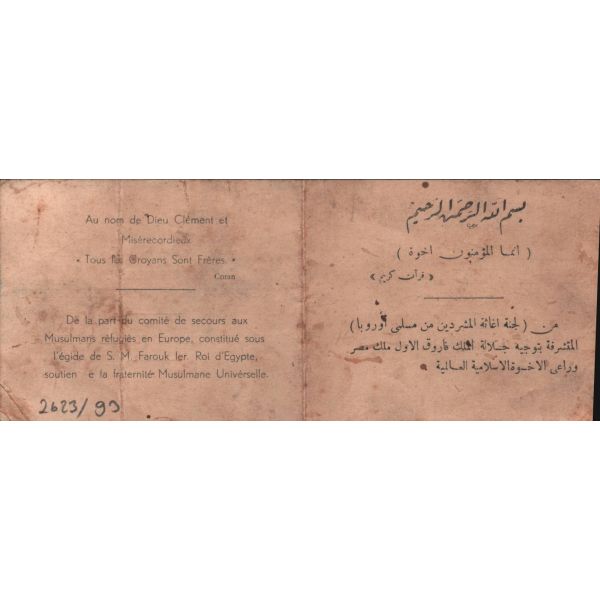 Au nom de Dieu Clément et
Miséricordieux
« Tous les Croyans Sont Frères »
Coran
De la part du comité de secours aux
Musulmans réfugiés en Europe, constitué sous
l'égide de S. M. Farouk Ier Roi d'Egypte,
soutien e la fraternité Musulmane Universelle.
2623/99
بسم الله الرحمن الرحيم
( انما المؤمنون اخوة )
« قرآن كريم »
من ( لجنة اغاثة المشردين من مسلمى أوروبا )
المتشرفة بتوجيه جلالة الملك فاروق الاول ملك مصر
وراعى الاخوة الاسلامية العالمية